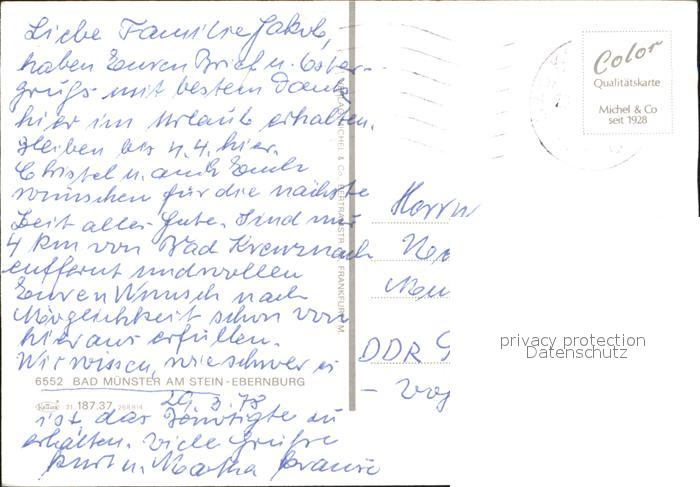 Liebe Familie Jakob,
haben Euren Brief u. Oster-
grüße mit bestem Dank
hier im Urlaub erhalten.
Bleiben bis 4.4. hier.
Christel u. auch Euch
wünschen für die nächste
Zeit alles Gute. Sind nur
4 km von Bad Kreuznach
entfernt und wollen
Euren Wunsch nach
Möglichkeit schon von
hier aus erfüllen.
Wir wissen, wie schwer es
6552 BAD MÜNSTER AM STEIN-EBERNBURG
21 187.37
29.3.78
ist das Benötigte zu
erhalten. Viele Grüße
Kurt u. Martha
Color
Qualitätskarte
Michel & Co
seit 1928
Herrn
DDR
privacy protection
Datenschutz